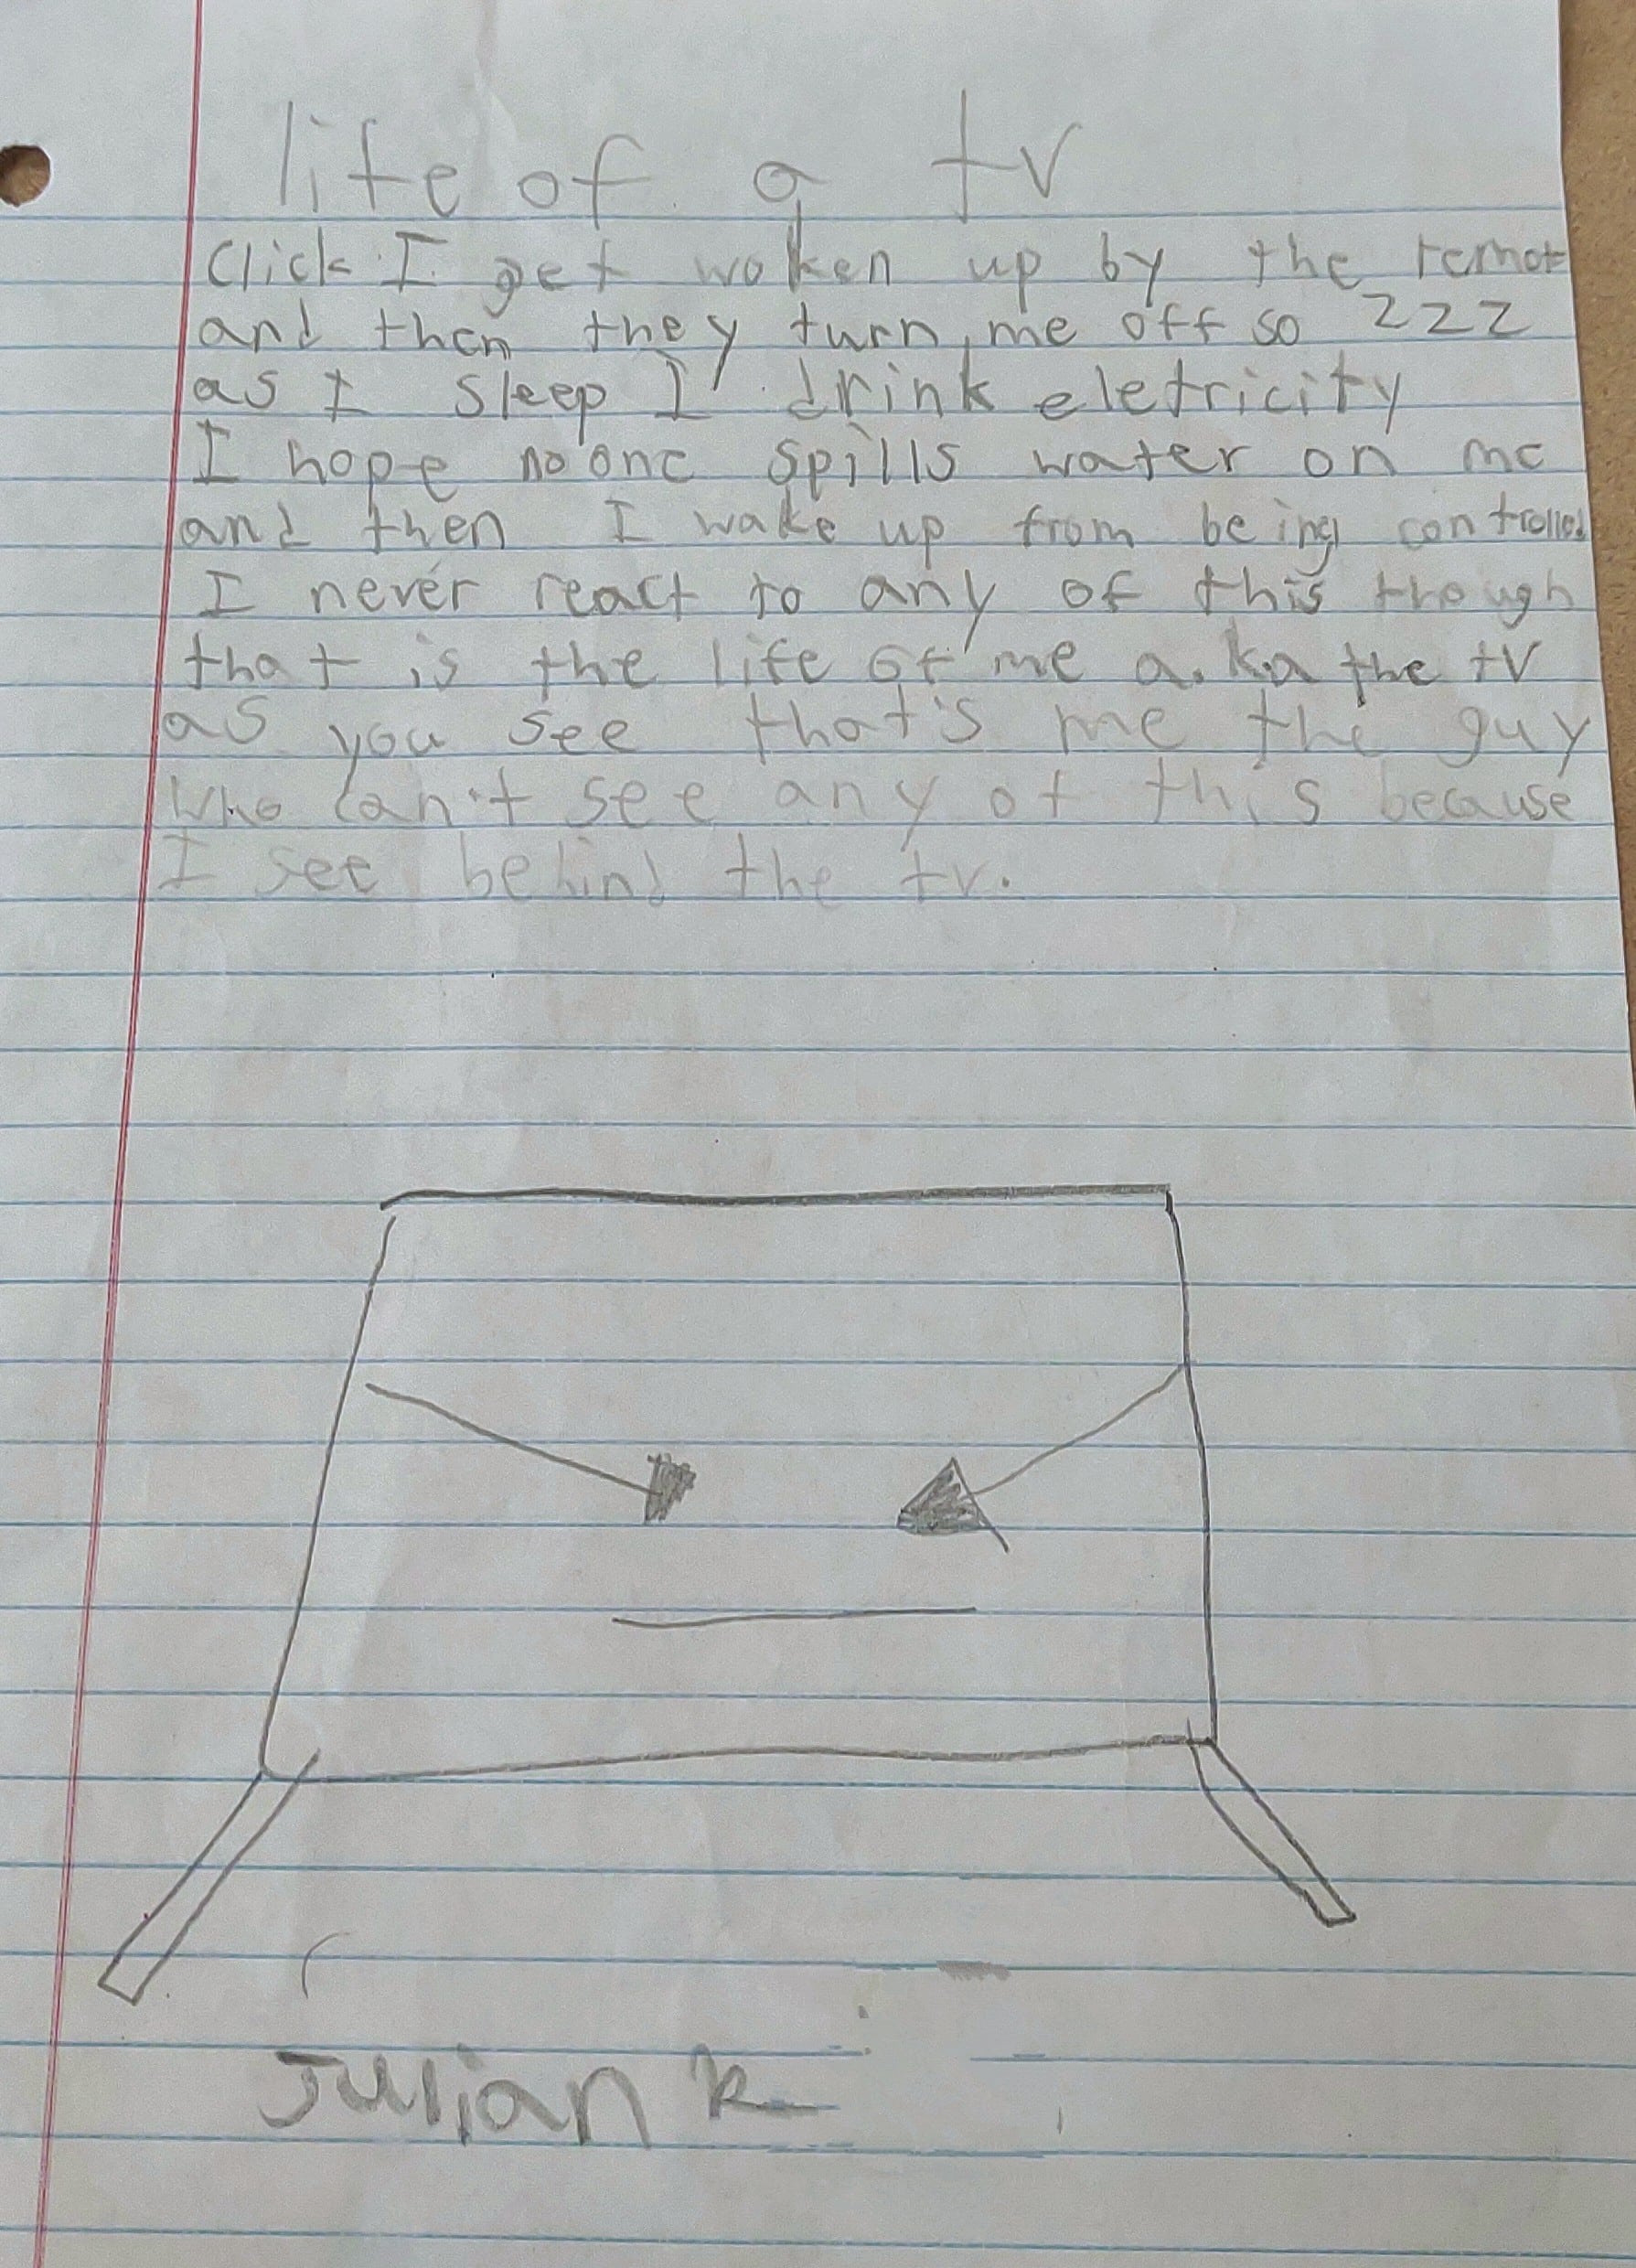 life of a tv
Click I get woken up by the remot
and then they turn me off so zzz
as I sleep I drink eletricity
I hope no one spills water on me
and then I wake up from being controlled
I never react to any of this though
that is the life of me a.k.a the tv
as you see that's me the guy
who can't see any of this because
I see behind the tv.
Julian k